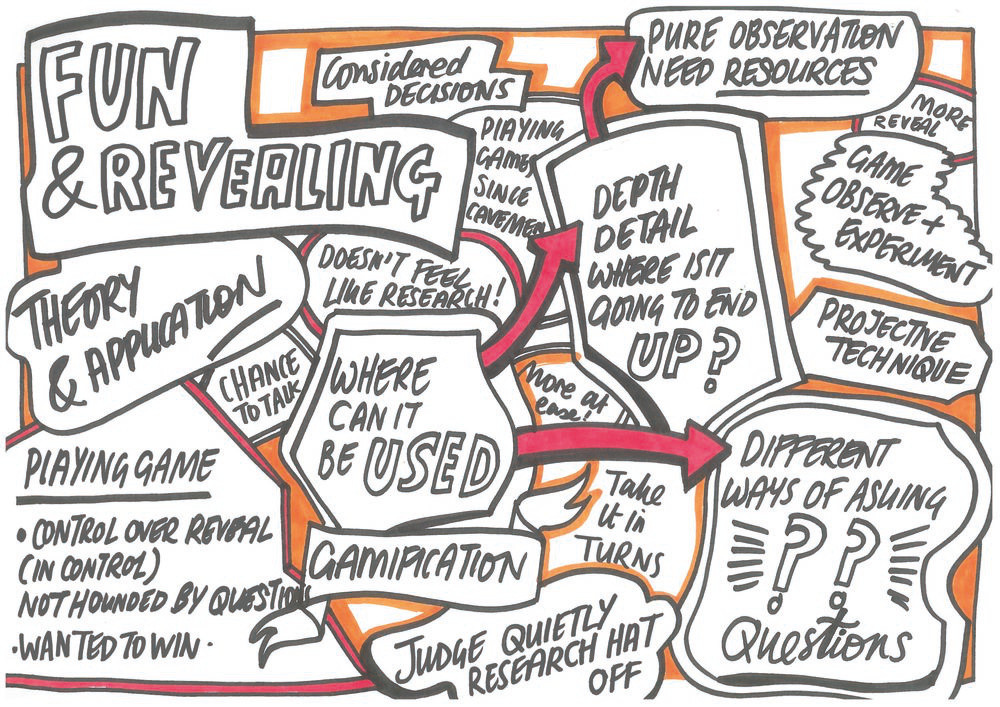 FUN
& REVEALING
Considered
DECISIONS
PURE OBSERVATION
NEED RESOURCES
MORE
REVEAL
PLAYING
GAMES
SINCE
CAVEMEN
GAME
OBSERVE +
EXPERIMENT
DEPTH
DETAIL
WHERE IS IT
GOING TO END
UP?
THEORY
& APPLICATION
DOESN'T FEEL
LIKE RESEARCH!
PROJECTIVE
TECHNIQUE
CHANCE
TO TALK
WHERE
CAN IT
BE USED
More at
ease!
PLAYING GAME
• CONTROL OVER REVEAL
(IN CONTROL)
NOT HOUNDED BY QUESTION
• WANTED TO WIN •
DIFFERENT
WAYS OF ASKING
? ?
Questions
Take
it in
TURNS
GAMIFICATION
JUDGE QUIETLY
RESEARCH HAT
OFF